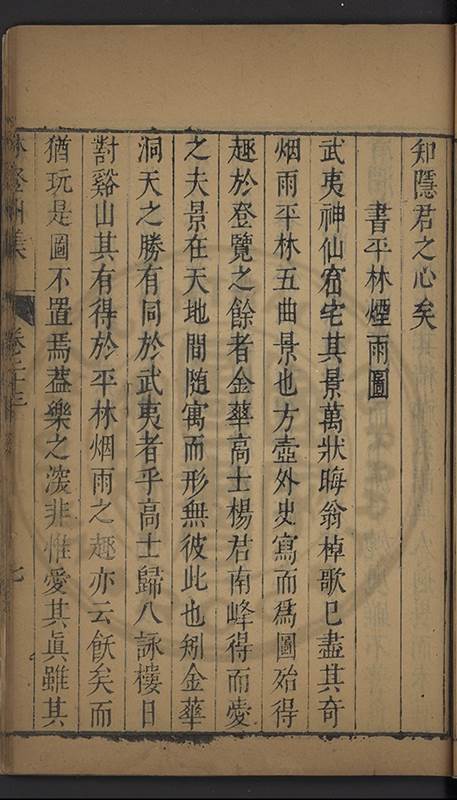 知隱君之心矣
書平林煙雨圖
武夷神仙窟宅其景萬狀晦翁棹歌已盡其奇
烟雨平林五曲景也方壺外史寫而為圖殆得
趣於登覽之餘者金華高士楊君南峰得而愛
之夫景在天地間隨寓而形無彼此也矧金華
洞天之勝有同於武夷者乎高士歸八詠樓日
對谿山其有得於平林烟雨之趣亦云飫矣而
猶玩是圖不置焉葢樂之深非惟愛其眞雖其
登州集
卷二十三
七